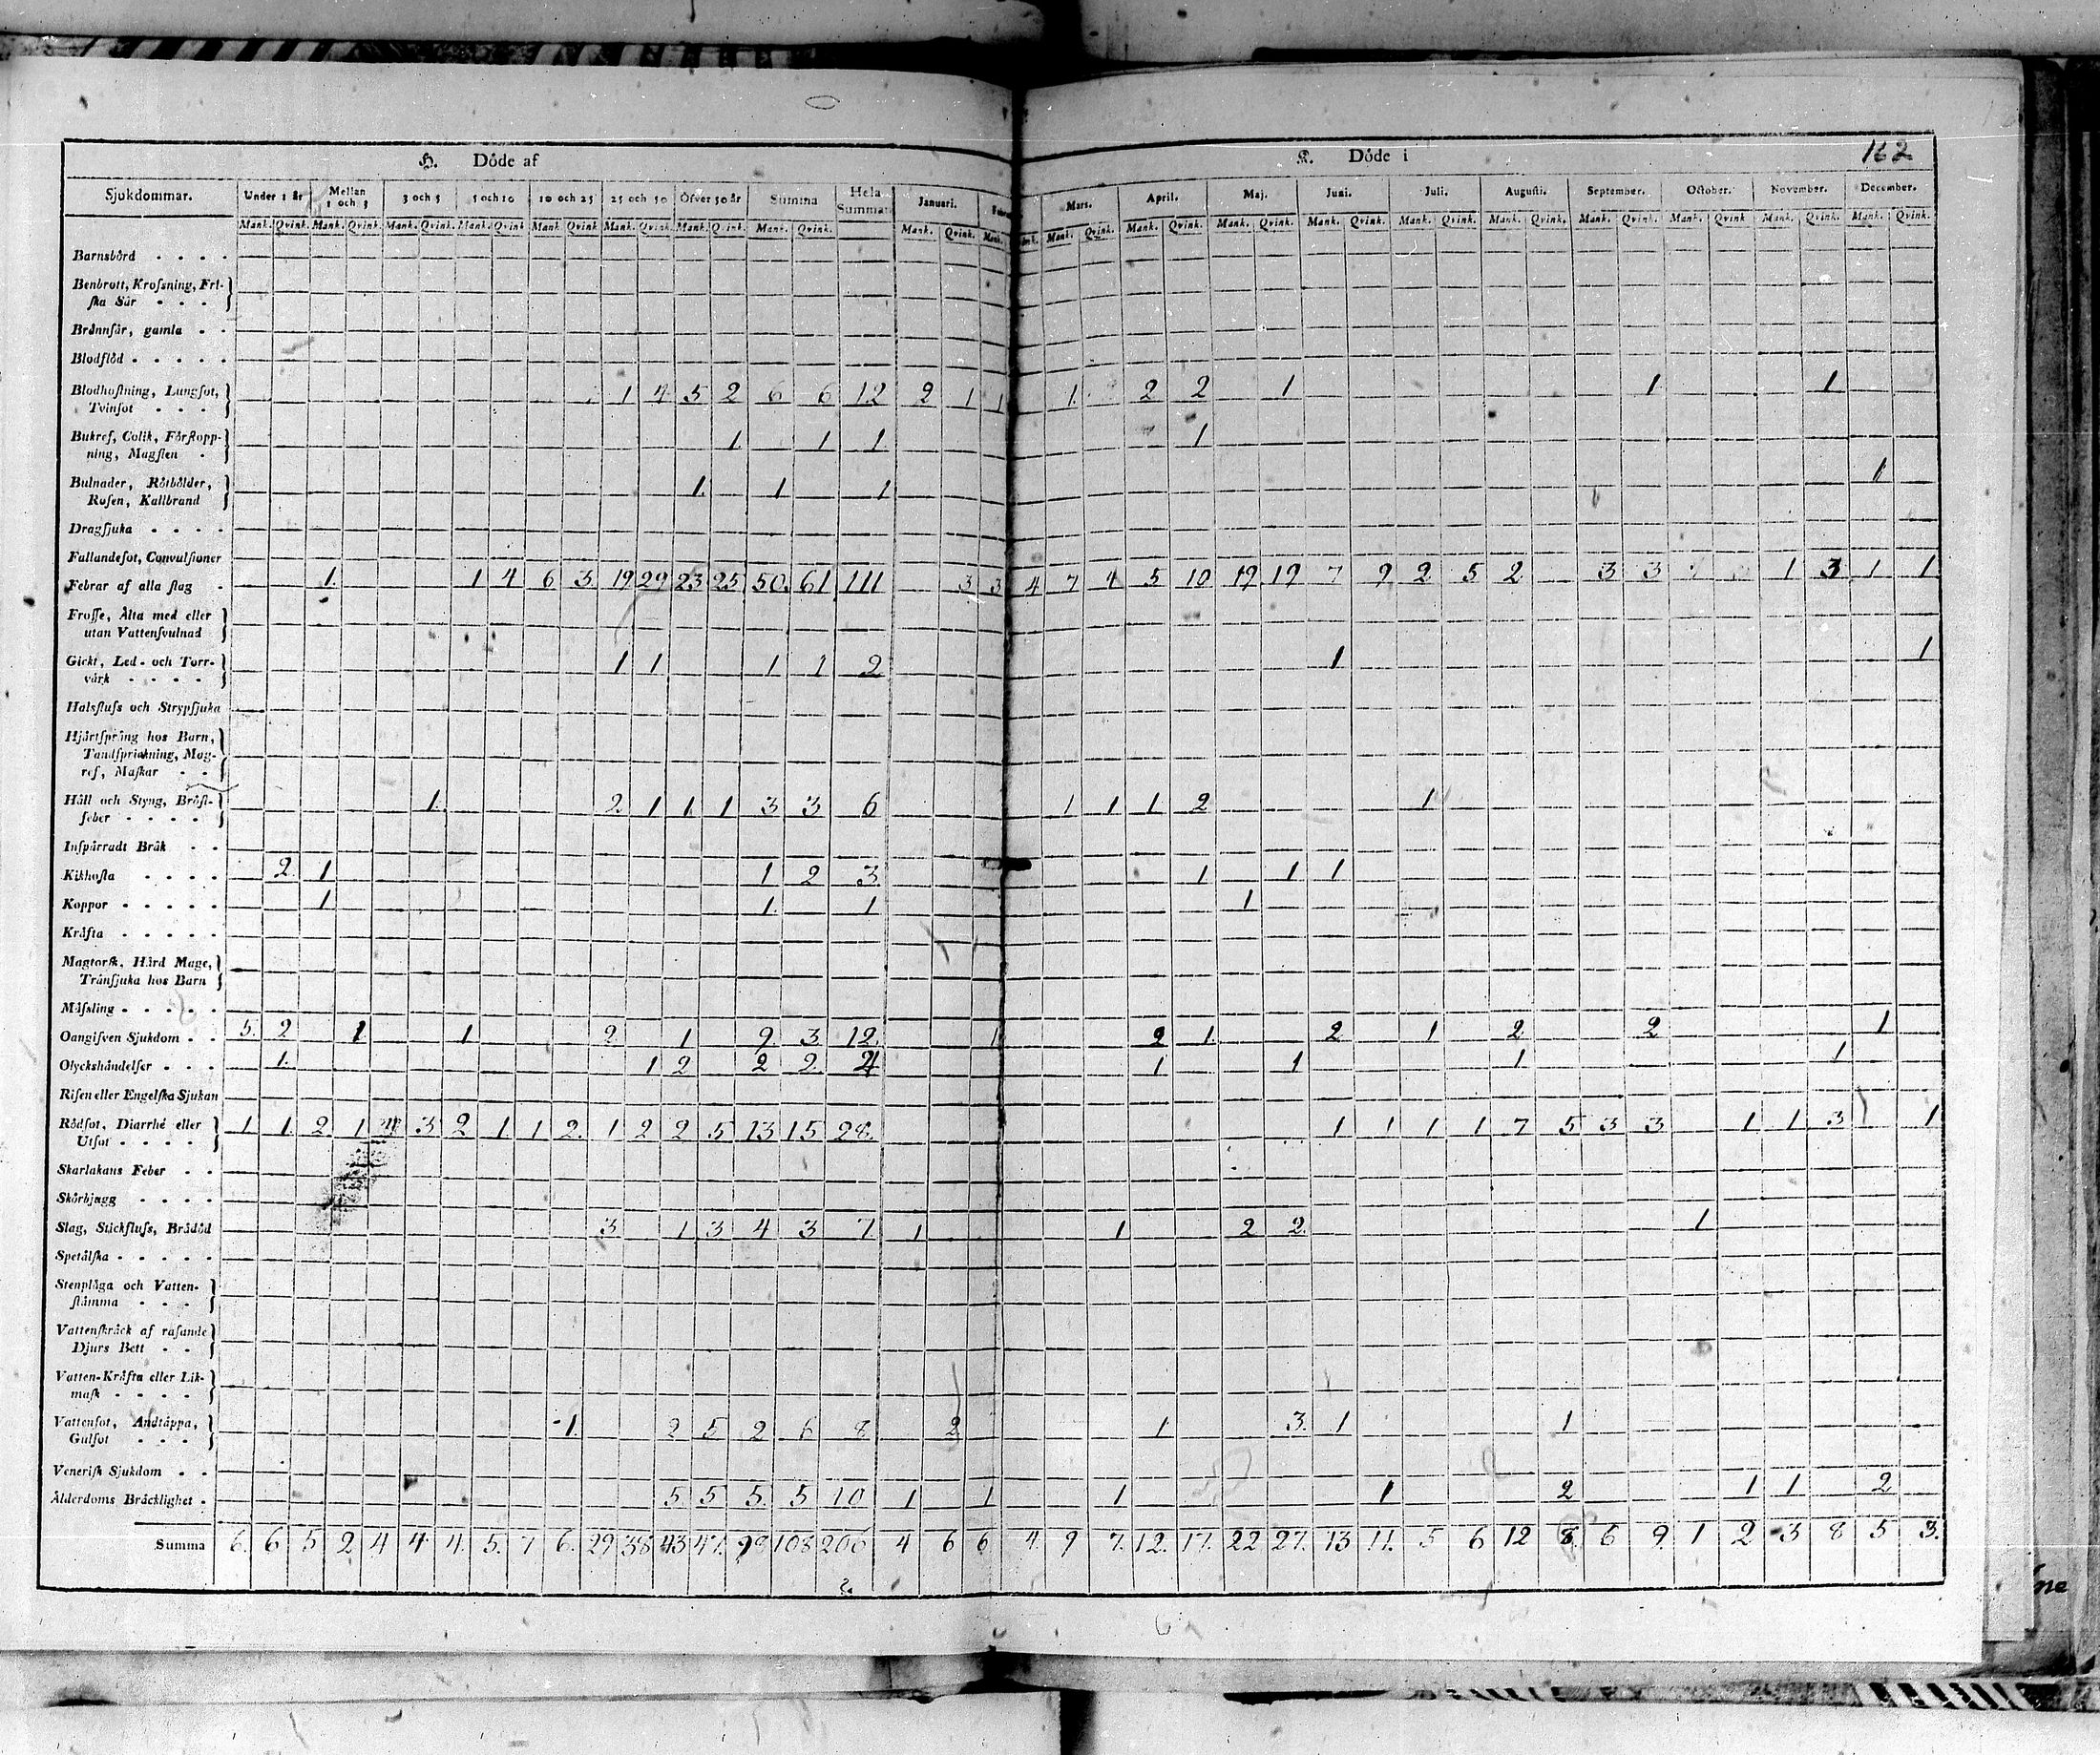 162
H. Döde af
K. Döde i
Sjukdommar. Under 1 år Mellan 1 och 3 3 och 5 5 och 10 10 och 25 25 och 50 Öfver 50 år Summa Hela Summan Januari. Mars. April. Maj. Juni. Juli. Augusti. September. October. November. December.
Mank. Qvink. Mank. Qvink. Mank. Qvink. Mank. Qvink Mank Qvink Mank. Qvink. Mank. Qvink. Mank. Qvink. Mank. Qvink. Mank. Mank. Qvink. Mank. Qvink. Mank. Qvink. Mank. Qvink. Mank. Qvink. Mank. Qvink. Mank. Qvink. Mank. Qvink Mank. Qvink. Mank. Qvink.
Barnsbörd
Benbrott, Krossning, Fri-
ska Sår
Brännsår, gamla
Blodflöd
Blodhostning, Lungsot,
Tvinsot 1 4 5 2 6 6 12 2 1 1 1 2 2 1 1 1
Bukref, Colik, Förstopp-
ning, Magsten 1 1 1 1
Bulnader, Rötbölder,
Rosen, Kallbrand 1 1 1 1
Dragsjuka
Fallandesot, Convulsioner
Febrar af alla slag 1 1 4 6 3 19 29 23 25 50 61 111 3 3 4 7 4 5 10 19 19 7 9 2 5 2 3 3 1 3 1 1
Frosse, Älta med eller
utan Vattensvulnad
Gickt, Led- och Torr-
värk 1 1 1 1 2 1 1
Halsfluss och Strypsjuka
Hjärtspräng hos Barn,
Tandsprickning, Mag-
ref, Maskar
Håll och Styng, Bröst-
feber 1 2 1 1 1 3 3 6 1 1 1 2 1
Inspärradt Bråk
Kikhosta 2 1 1 2 3 1 1 1
Koppor 1 1 1 1
Kräfta
Magtorsk, Hård Mage,
Tränsjuka hos Barn
Mässling
Oangifven Sjukdom 5 2 1 1 2 1 9 3 12 1 2 1 2 1 2 2 1
Olyckshändelser 1 1 2 2 2 4 1 1 1 1
Risen eller Engelska Sjukan
Rödsot, Diarrhé eller
Utsot 1 1 2 1 4 3 2 1 1 2 1 2 2 5 13 15 28 1 1 1 1 7 5 3 3 1 1 3 1
Skarlakans Feber
Skörbjugg
Slag, Stickfluss, Brådöd 3 1 3 4 3 7 1 1 2 2 1
Spetälska
Stenplåga och Vatten-
stämma
Vattenskräck af rasande
Djurs Bett
Vatten-Kräfta eller Lik-
mask
Vattensot, Andtäppa,
Gulsot 1 2 5 2 6 8 2 1 3 1 1
Venerisk Sjukdom
Ålderdoms Bräcklighet 5 5 5 5 10 1 1 1 1 2 1 1 2
Summa 6 6 5 2 4 4 4 5 7 6 29 38 43 47 98 108 206 4 6 6 4 9 7 12 17 22 27 13 11 5 6 12 8 6 9 1 2 3 8 5 3